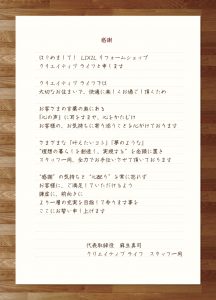 感謝
はじめまして! LIXILリフォームショップ
クリエイティブライフと申します
クリエイティブライフでは
大切なお住まいで、快適に楽しくお過ごし頂くため
お客さまの言葉の奥にある
「心の声」に耳をすませ、心をかたむけ
お客様の、お気持ちに寄り添うことを心がけております
さまざまな「叶えたいコト」「夢のような」
"理想の暮らしを創造し、実現する" を念頭に置き
スタッフ一同、全力でお手伝いさせて頂いております
"感謝" の気持ちと "心配り" を常に忘れず
お客様に、ご満足していただけるよう
謙虚に、前向きに
より一層の充実を目指して参ります事を
ここにお誓い申し上げます
代表取締役 麻生真司
クリエイティブライフ スタッフ一同